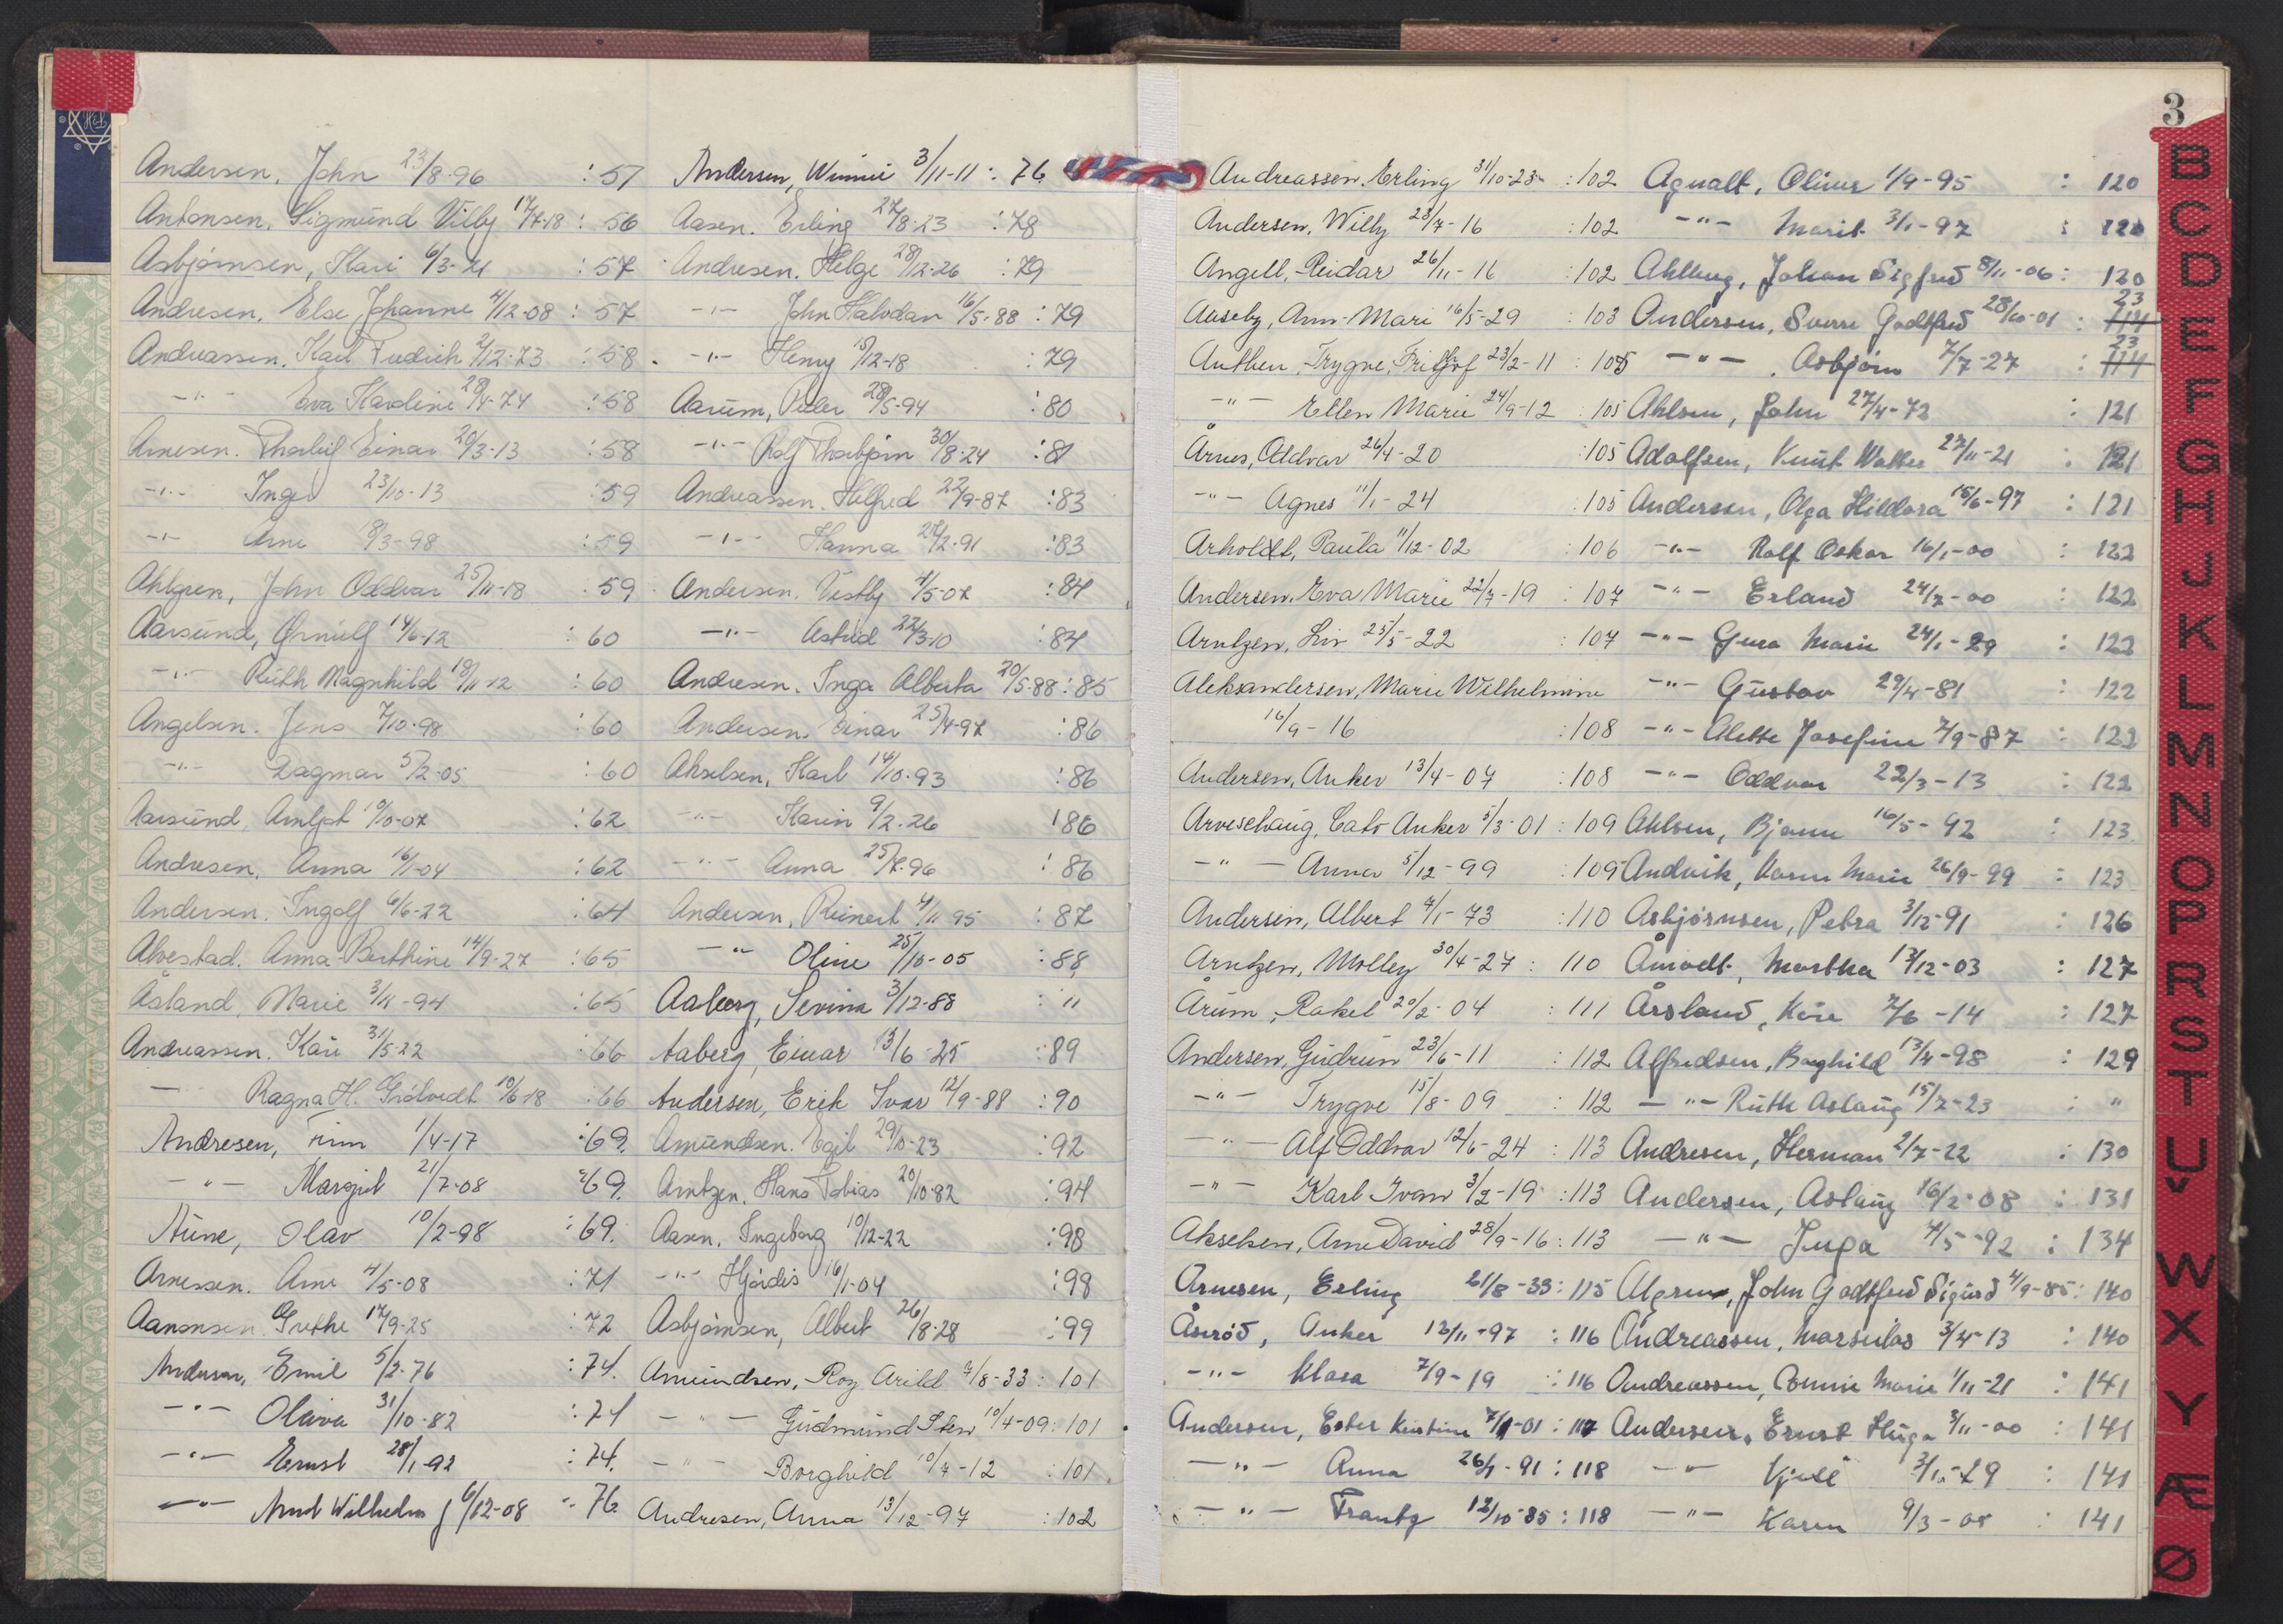 Andersen, John 23/8-96 : 57
Antonsen, Sigmund Vilby 17/7-18 : 56
Asbjørnsen, Kari 6/3-21 : 57
Andresen, Else Johanne 4/12-08 : 57
Andreassen, Karl Fredrich 2/12-73 : 58
-"- Eva Karoline 28/8-74 : 58
Arnesen, Thorleif Einar 20/3-13 : 58
-"- Inger 23/10-13 : 59
-"- Arne 18/3-98 : 59
Ahlgren, John Oddvar 25/11-18 : 59
Aarsund, Ørnulf 14/6-12 : 60
-"- Ruth Magnhild 18/11-12 : 60
Angelsen, Jens 7/10-98 : 60
-"- Dagmar 5/2-05 : 60
Aarsund, Arnljot 10/10-07 : 62
Andresen, Anna 16/1-04 : 62
Andersen, Ingolf 6/6-22 : 64
Alvestad, Anna-Berthine 14/9-27 : 65
Åsland, Marie 3/11-94 : 65
Andreassen, Kari 31/5-22 : 66
- Ragna H. Gråtvedt 10/6-18 : 66
Andresen, Finn 1/4-17 : 69.
-"- Margit 21/7-08 : 69.
Aune, Olav 10/2-98 : 69.
Arnessen, Arne 4/5-08 : 71
Aanonsen, Grethe 17/9-25 : 72
Andersen, Emil 5/2-76 : 74.
-"- Olava 31/10-82 : 74
-"- Ernst 28/1-92 : 74.
-"- Arnt Wilhelm J 6/12-08 : 76
Andersen, Winnie 3/11-11 : 76
Aasen, Erling 27/8-23 : 78
Andresen, Helge 28/12-26 : 79
-"- John Halvdan 16/5-88 : 79
-"- Henry 19/12-18 : 79
Aarum, Peder 28/5-94 : 80
-"- Rolf Thorbjørn 30/8-24 : 81
Andreassen, Halfred 22/9-87 : 83
-"- Hanna 27/2-91 : 83
Andersen, Vestby 4/5-07 : 84
-"- Astrid 22/3-10 : 84
Andresen, Inga Alberta 20/5-88 : 85
Andersen, Einar 25/4-97 : 86
Akselsen, Karl 14/10-93 : 86
-"- Karin 9/2-26 : 86
-"- Anna 25/7-96 : 86
Andersen, Reinert 4/11-95 : 87
-"- Oline 25/10-05 : 88
Aaberg, Sevina 3/12-88 : "
Aaberg, Einar 13/6-25 : 89
Andersen, Erik Ivar 12/9-88 : 90
Amundsen, Egil 29/10-23 : 92
Arntzen, Hans Tobias 20/10-82 : 94
Aasen, Ingeborg 10/12-22 : 98
-"- Hjørdis 16/1-04 : 98
Asbjørnsen, Albert 26/8-28 : 99
Amundsen, Roy Arild 7/8-33 : 101
-"- Gudmund Sten 10/4-09 : 101
-"- Borghild 10/7-12 : 101
Andresen, Anna 13/12-97 : 102
3
Andreassen, Erling 31/10-23 : 102
Andersen, Willy 28/7-16 : 102
Angell, Reidar 26/11-16 : 102
Aaseby, Ann-Mari 16/5-29 : 103
Anthen, Trygve Fritjof 23/2-11 : 105
-"- Ellen Marie 24/9-12 : 105
Årnes, Oddvar 26/4-20 : 105
-"- Agnes 11/1-24 : 105
Arholdt, Paula 11/12-02 : 106
Andersen, Eva Marie 22/7-19 : 107
Arntzen, Liv 25/5-22 : 107
Aleksandersen, Marie Wilhelmine
16/9-16 : 108
Andersen, Anker 13/4-07 : 108
Arveschaug, Cato Anker 5/3-01 : 109
-"- Anna 5/12-99 : 109
Andersen, Albert 4/1-73 : 110
Arntzen, Molley 30/4-27 : 110
Årum, Rakel 20/2-04 : 111
Andersen, Gudrun 23/6-11 : 112
-"- Trygve 15/8-09 : 112
-"- Alf Oddvar 12/6-24 : 113
-"- Karl Ivan 3/2-19 : 113
Akselsen, Arne David 28/9-16 : 113
Arnesen, Erling 21/8-33 : 115
Åserød, Anker 12/11-97 : 116
-"- Klara 7/9-19 : 116
Andersen, Ester Kristine 7/1-01 : 117
-"- Anna 26/1-91 : 118
-"- Frantz 12/10-85 : 118
Agnalt, Oliver 1/9-95 : 120
-"- Marit 3/1-97 : 120
Ahlberg, Johan Sigfred 8/11-06 : 120
Andersen, Sverre Godtfred 28/10-01 : 23 114
-"- Asbjørn 7/7-27 : 23 114
Ahlsen, John 27/4-72 : 121
Adolfsen, Knut Walter 27/11-21 : 121
Andersen, Olga Hildora 15/6-97 : 121
-"- Rolf Oskar 16/1-00 : 122
-"- Erland 24/7-00 : 122
-"- Gura Marie 24/1-29 : 122
-"- Gustav 29/4-81 : 122
-"- Alette Josefine 7/9-87 : 122
-"- Oddvar 22/3-13 : 122
Ahlsen, Bjarne 16/5-92 : 123
Andvik, Karen Marie 26/9-99 : 123
Asbjørnsen, Petra 3/12-91 : 126
Åmodt, Martha 13/12-03 : 127
Årsland, Kåre 7/6-14 : 127
Alfredsen, Borghild 13/4-98 : 129
-"- Ruth Aslaug 15/7-23 : "
Andresen, Herman 2/7-22 : 130
Andersen, Aslaug 16/2-08 : 131
-"- Inga 4/5-92 : 134
Algren, John Godtfred Sigurd 4/9-85 : 140
Andreassen, Marselius 3/4-13 : 140
Andreassen, Connie Marie 1/11-21 : 141
Andersen, Ernst Hugo 3/11-00 : 141
-"- Kjell 3/10-29 : 141
-"- Karen 9/3-08 : 141
B
C
D
E
F
G
H
I
J
K
L
M
N
O
P
R
S
T
U
V
W
X
Y
Æ
Ø